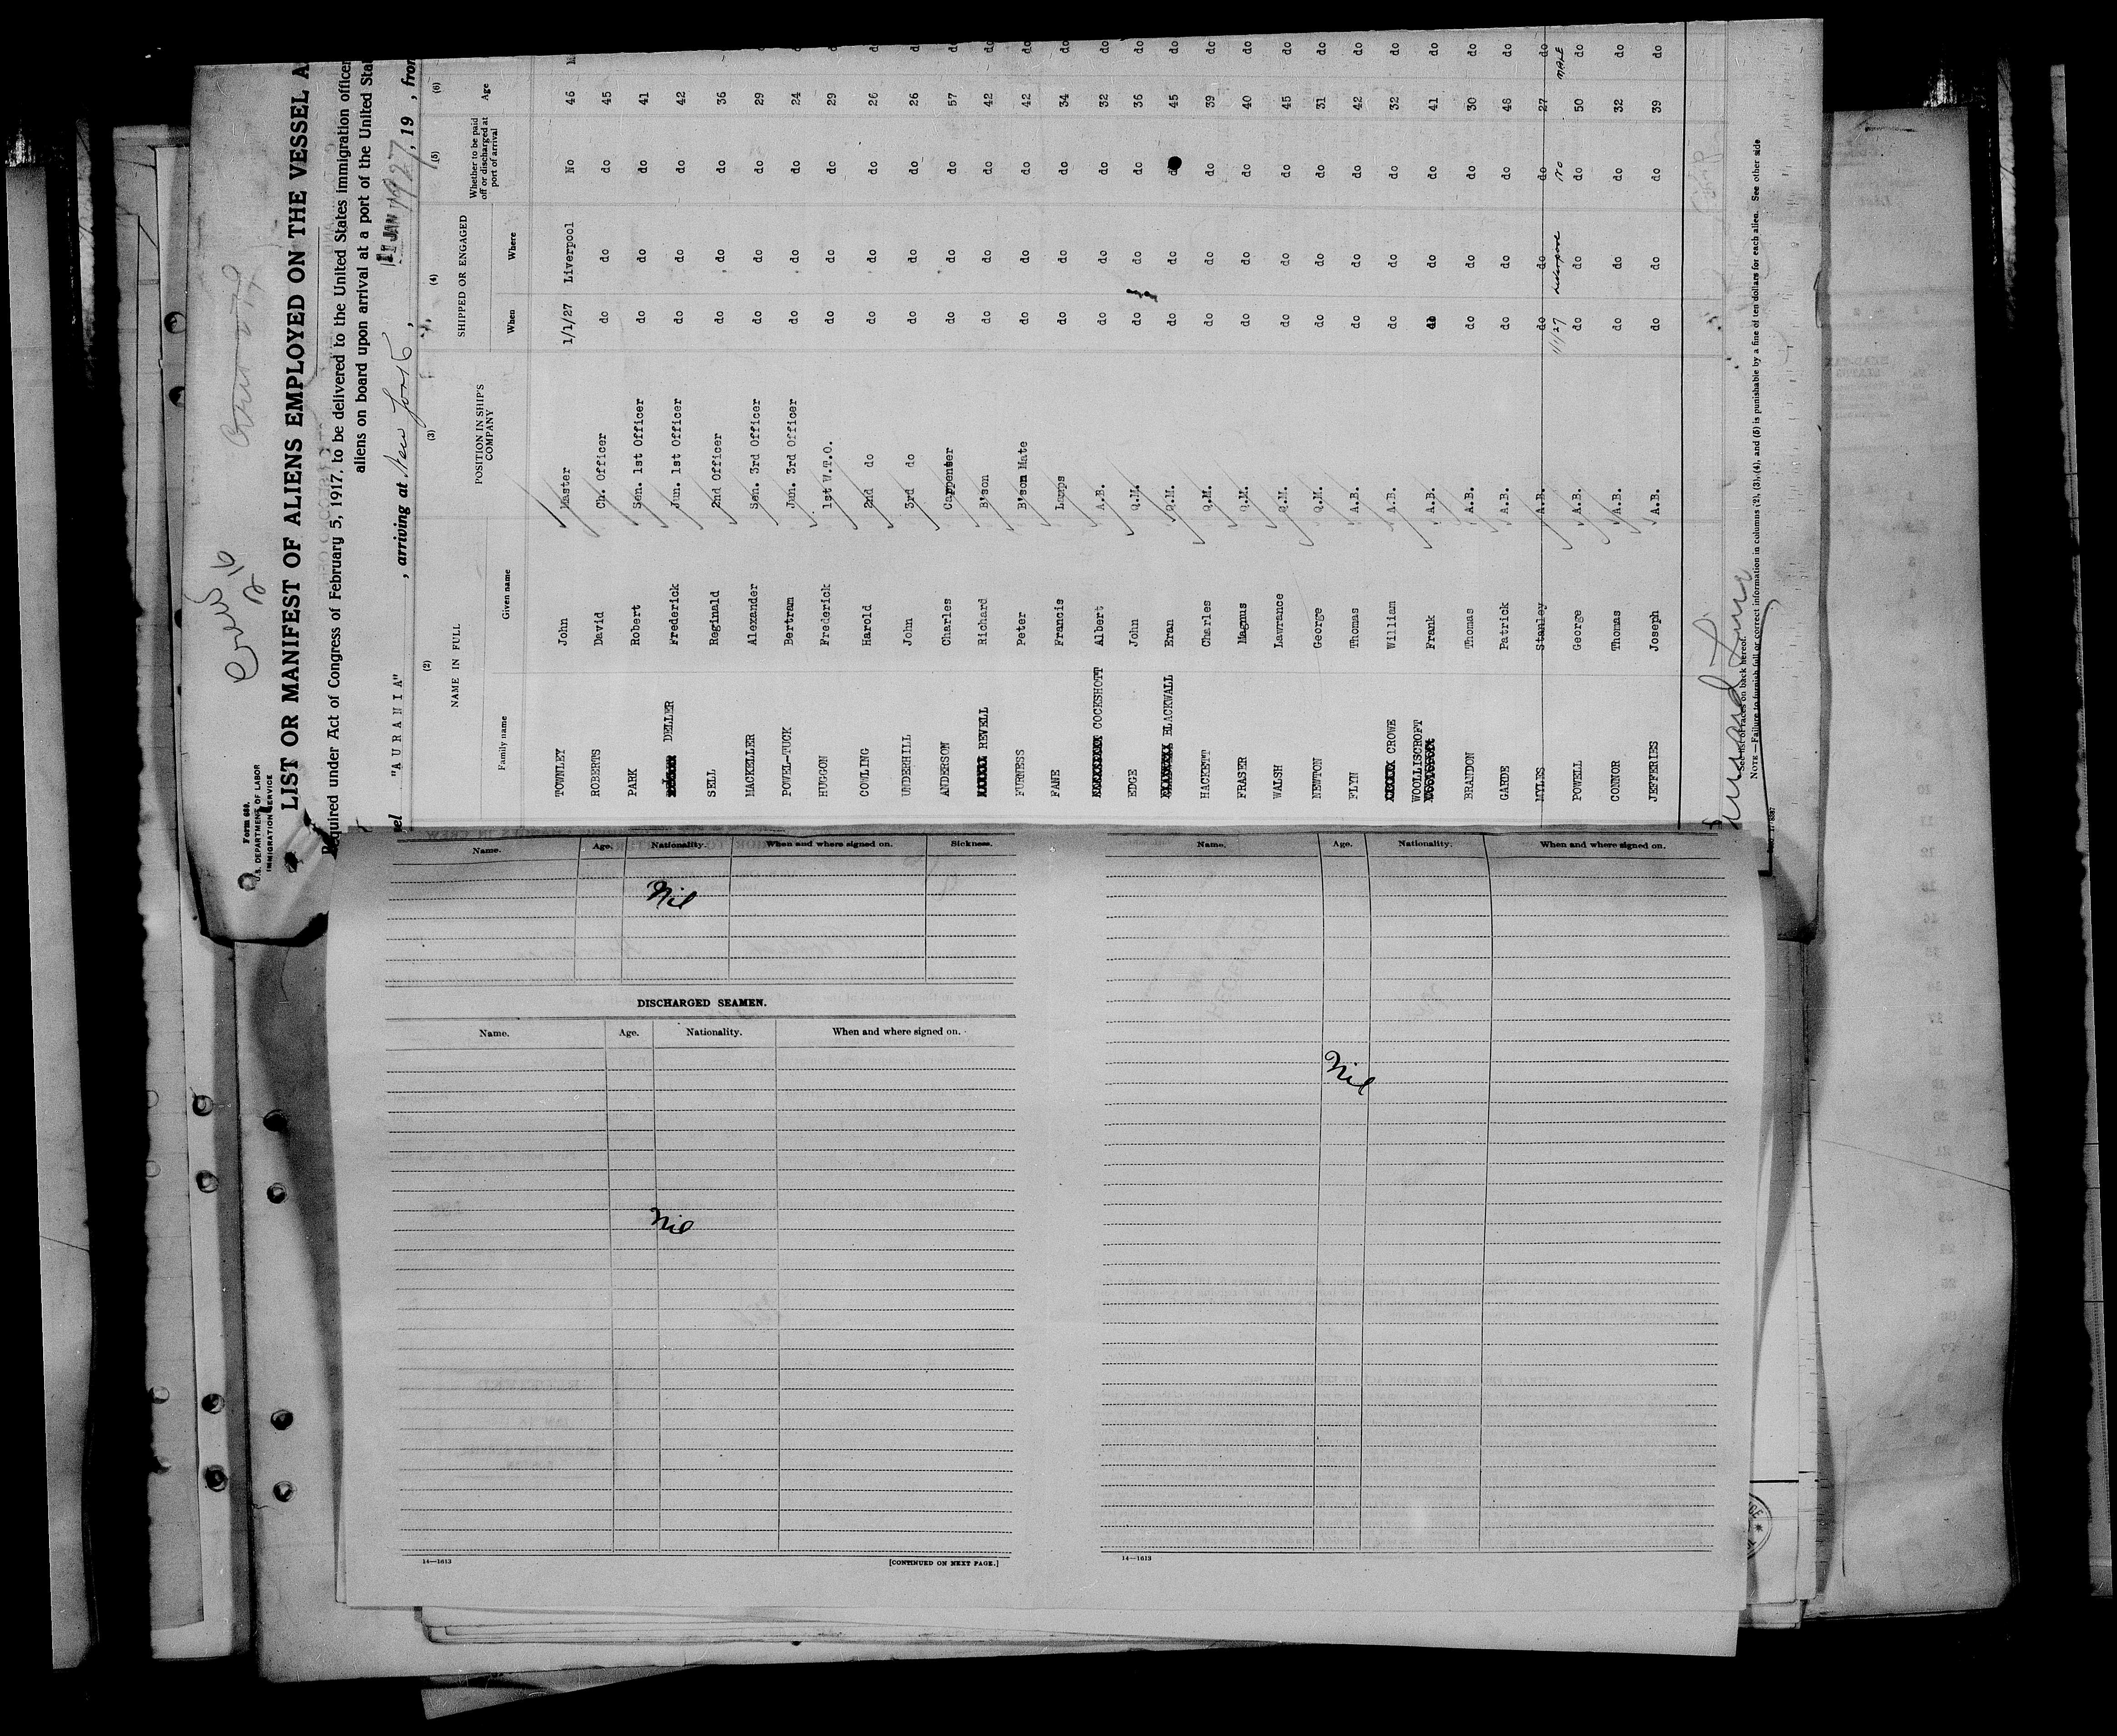 Form 680.
U.S. DEPARTMENT OF LABOR
IMMIGRATION SERVICE
LIST OR MANIFEST OF ALIENS EMPLOYED ON THE VESSEL A
Required under Act of Congress of February 5, 1917, to be delivered to the United States immigration officer
aliens on board upon arrival at a port of the United Stat
el "AURANIA" , arriving at New York , 11 JAN 1927, 19 , from
(2) (3) (4) (5) (6)
NAME IN FULL POSITION IN SHIP'S COMPANY SHIPPED OR ENGAGED Whether to be paid off or discharged at port of arrival Age
Family name Given name When Where
TOWNLEY John Master 1/1/27 Liverpool No 46 M
ROBERTS David Ch. Officer do do do 45 do
PARK Robert Sen. 1st Officer do do do 41 do
DELLER Frederick Jun. 1st Officer do do do 42 do
SELL Reginald 2nd Officer do do do 36
MACKELLER Alexander Sen. 3rd Officer do do do 29 d
POWEL-TUCK Bertram Jun. 3rd Officer do do do 24 d
HUGGON Frederick 1st W.T.O. do do do 29 d
COWLING Harold 2nd do do do do 26 d
UNDERHILL John 3rd do do do do 26 d
ANDERSON Charles Carpenter do do do 57 do
REVELL Richard B'son do do do 42 do
FURNESS Peter B'son Mate do do do 42 do
FANE Francis Lamps do do do 34 do
COCKSHOTT Albert A.B. do do do 32 do
EDGE John Q.M. do do do 36 do
BLACKWALL Eran Q.M. do do do 45 do
HACKETT Charles Q.M. do do do 39 do
FRASER Magnus Q.M. do do do 40 do
WALSH Lawrance Q.M. do do do 45 do
NEWTON George Q.M. do do do 31 do
FLYN Thomas A.B. do do do 42 do
CROWE William A.B. do do do 32 do
WOOLLISCROFT Frank A.B. do do do 41 do
BRANDON Thomas A.B. do do do 30 do
GARDE Patrick A.B. do do do 48 do
MYLES Stanley A.B. do do do 27 do
POWELL George A.B. 1/1/27 do Liverpool do No do 50 MALE do
CONNOR Thomas A.B. do do do 32 do
JEFFERIES Joseph A.B. do do do 39 do
Cunard Line
See list of races on back hereof.
NOTE.—Failure to furnish full or correct information in columns (2), (3), (4), and (5) is punishable by a fine of ten dollars for each alien. See other side
Name. Age. Nationality. When and where signed on. Sickness.
Nil
DISCHARGED SEAMEN.
Name. Age. Nationality. When and where signed on.
Nil
14—1613 [CONTINUED ON NEXT PAGE.]
Name. Age. Nationality. When and where signed on.
Nil
14—1613